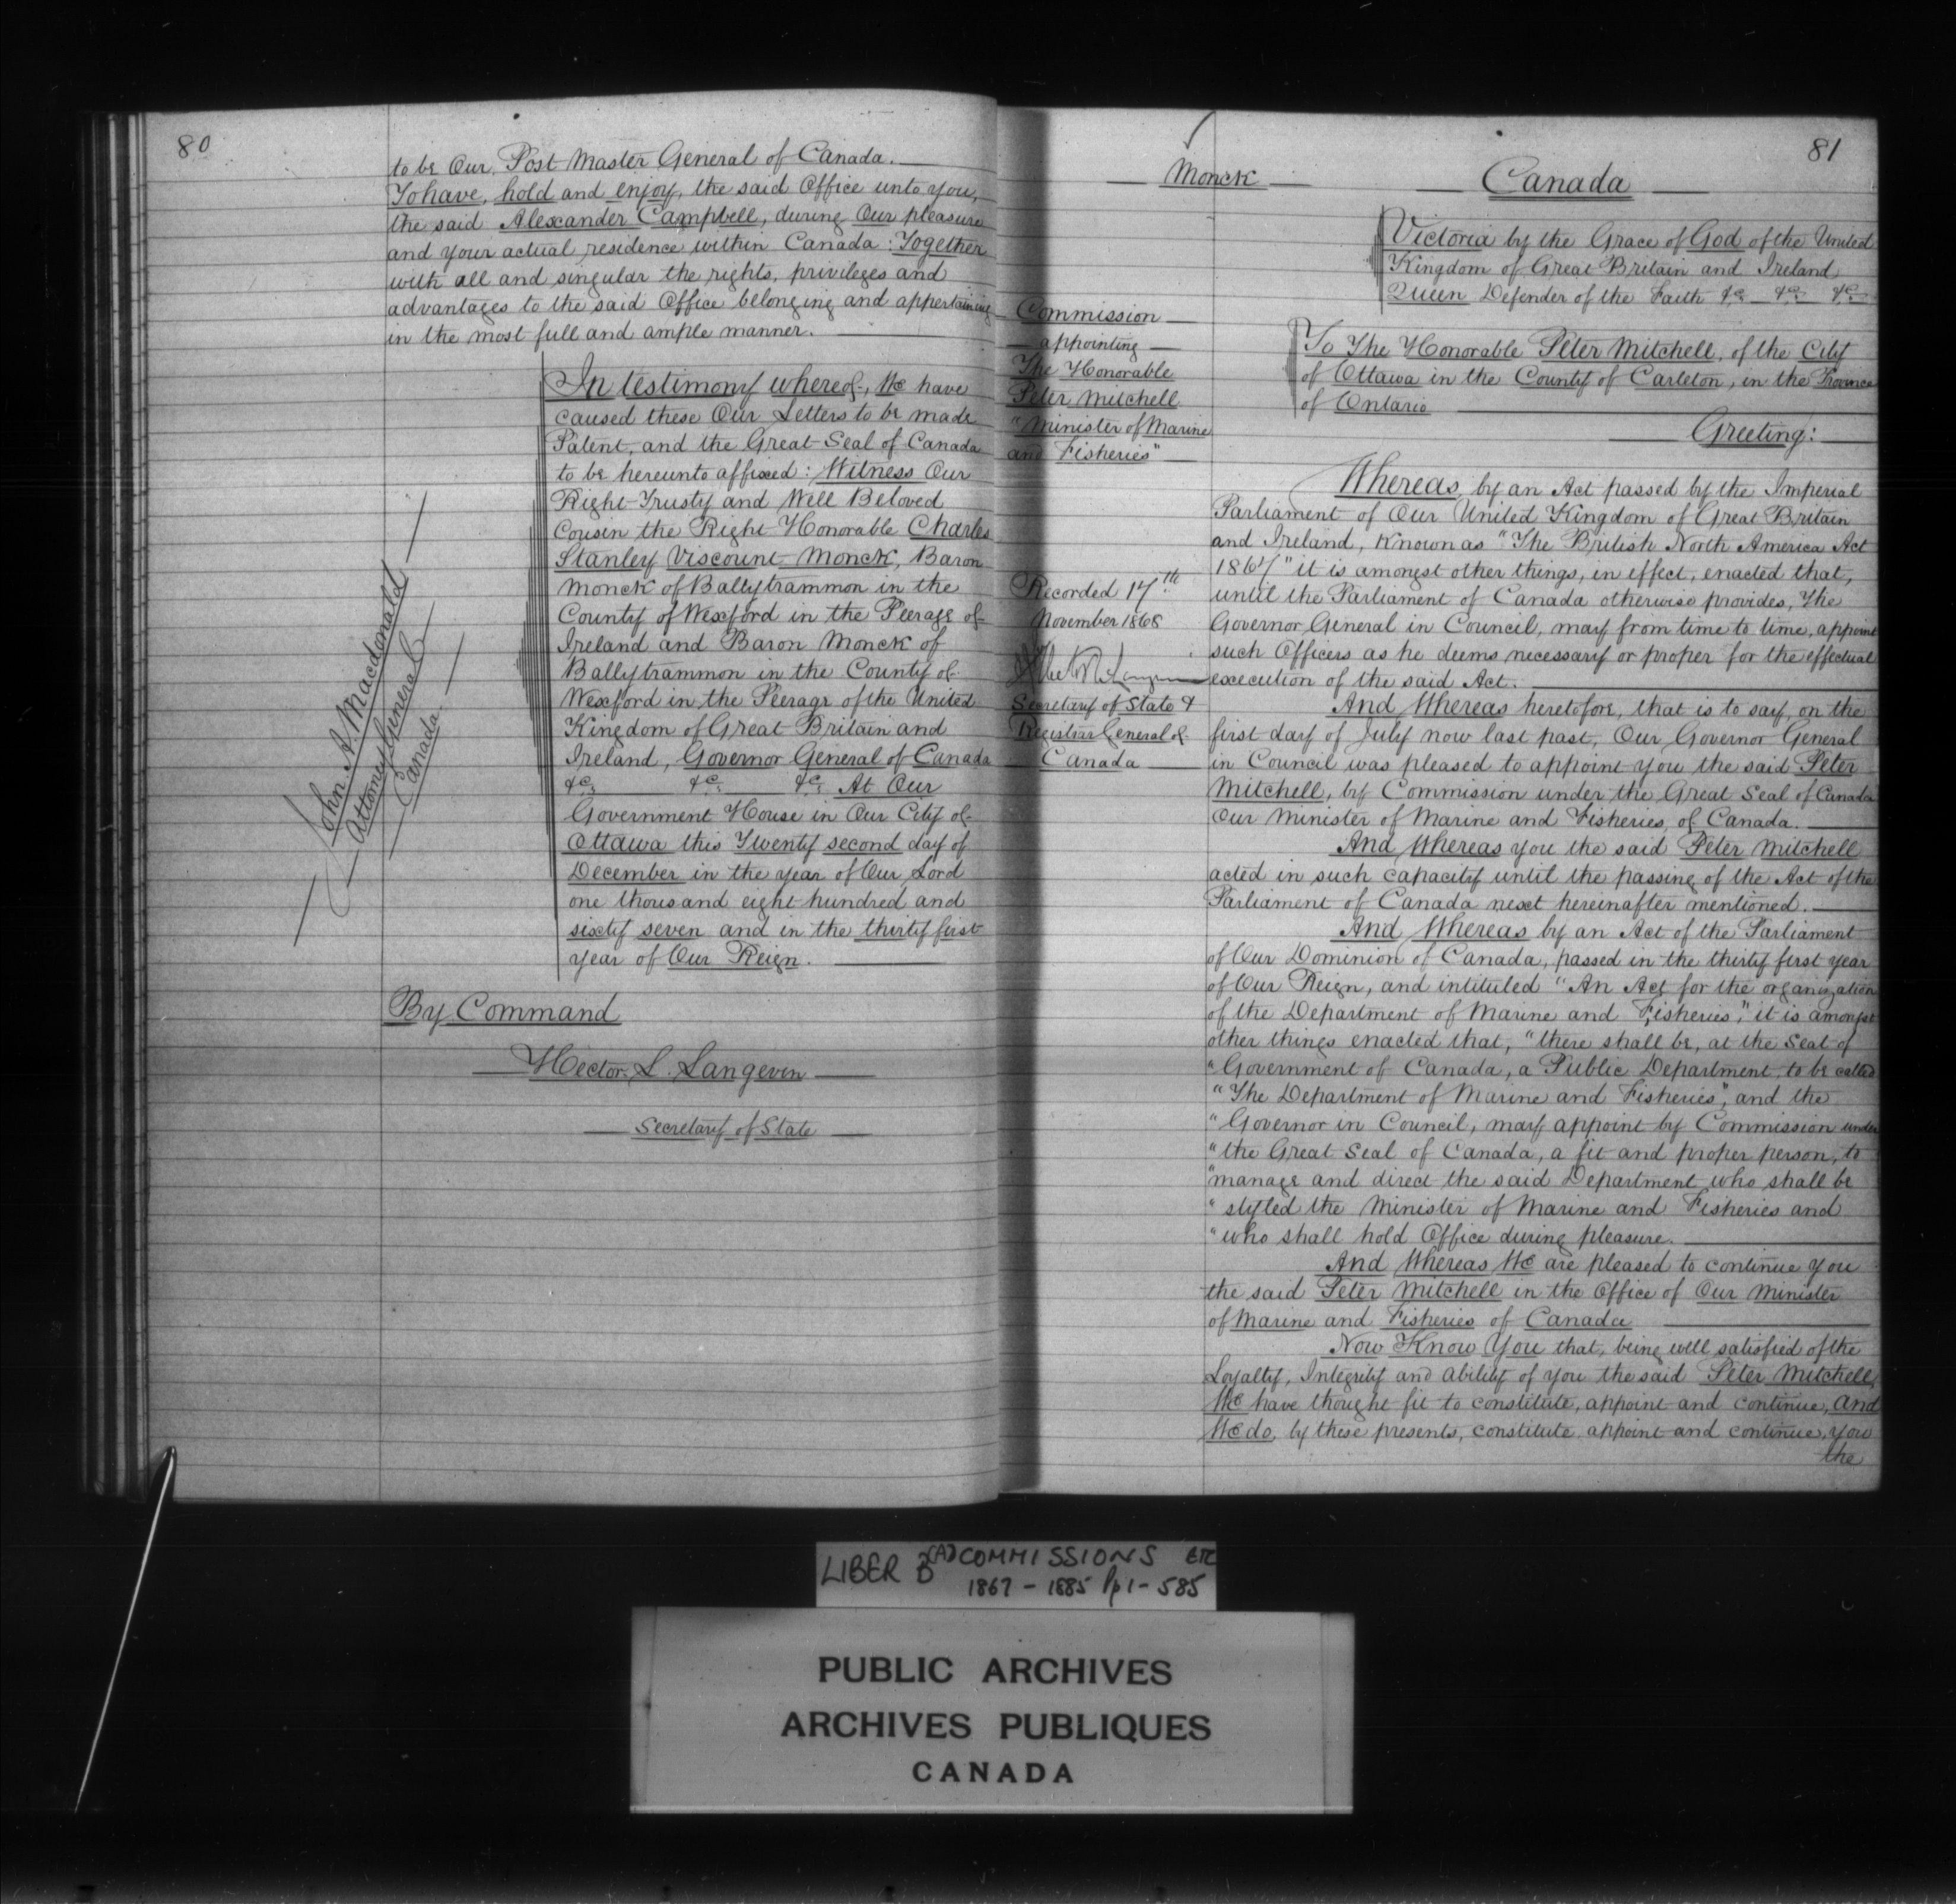 80
to be Our Post Master General of Canada.
To have, hold and enjoy, the said Office unto you,
the said Alexander Campbell, during Our pleasure
and your actual residence within Canada: Together
with all and singular the rights, privileges and
advantages to the said Office belonging and appertaining
in the most full and ample manner.
In testimony whereof, We have
caused these Our Letters to be made
Patent, and the Great Seal of Canada
to be hereunto affixed: Witness Our
Right Trusty and Well Beloved
Cousin the Right Honorable Charles
Stanley Viscount Monck, Baron
Monck of Ballytrammon in the
County of Wexford in the Peerage of
Ireland and Baron Monck of
Ballytrammon in the County of
Wexford in the Peerage of the United
Kingdom of Great Britain and
Ireland, Governor General of Canada
&c. &c. &c. At Our
Government House in Our City of
Ottawa this Twenty second day of
December in the year of Our Lord
one thousand eight hundred and
sixty seven and in the thirty first
year of Our Reign.
John. A. Macdonald
Attorney General
Canada
By Command
Hector. L. Langevin
Secretary of State
81
Monck
Canada
Victoria by the Grace of God of the United
Kingdom of Great Britain and Ireland
Queen Defender of the Faith &c. &c. &c.
To The Honorable Peter Mitchell, of the City
of Ottawa in the County of Carleton, in the Province
of Ontario
Greeting:
Commission
appointing
The Honorable
Peter Mitchell
"Minister of Marine
and Fisheries"
Recorded 17th
November 1868
Secretary of State &
Registrar General of
Canada
Whereas by an Act passed by the Imperial
Parliament of Our United Kingdom of Great Britain
and Ireland, Known as "The British North America Act
1867" it is amongst other things, in effect, enacted that,
until the Parliament of Canada otherwise provides, The
Governor General in Council, may from time to time, appoint
such Officers as he deems necessary or proper for the effectual
execution of the said Act.
And Whereas heretofore, that is to say, on the
first day of July now last past, Our Governor General
in Council was pleased to appoint you the said Peter
Mitchell, by Commission under the Great Seal of Canada
Our Minister of Marine and Fisheries, of Canada.
And Whereas you the said Peter Mitchell
acted in such capacity until the passing of the Act of the
Parliament of Canada next hereinafter mentioned.
And Whereas by an Act of the Parliament
of Our Dominion of Canada, passed in the thirty first year
of Our Reign, and intituled "An Act for the organization
of the Department of Marine and Fisheries", it is amongst
other things enacted that, "there shall be, at the Seat of
"Government of Canada, a Public Department, to be called
"The Department of Marine and Fisheries", and the
"Governor in Council, may appoint by Commission under
"the Great Seal of Canada, a fit and proper person, to
"manage and direct the said Department, who shall be
"styled the Minister of Marine and Fisheries and
"who shall hold Office during pleasure.
And Whereas We are pleased to continue you
the said Peter Mitchell in the Office of Our Minister
of Marine and Fisheries of Canada
Now Know You that, being well satisfied of the
Loyalty, Integrity and Ability of you the said Peter Mitchell,
We have thought fit to constitute, appoint and continue, And
We do, by these presents, constitute appoint and continue, you
the
LIBER B (A) COMMISSIONS ETC
1867 - 1885 Pp 1 - 585
PUBLIC ARCHIVES
ARCHIVES PUBLIQUES
CANADA